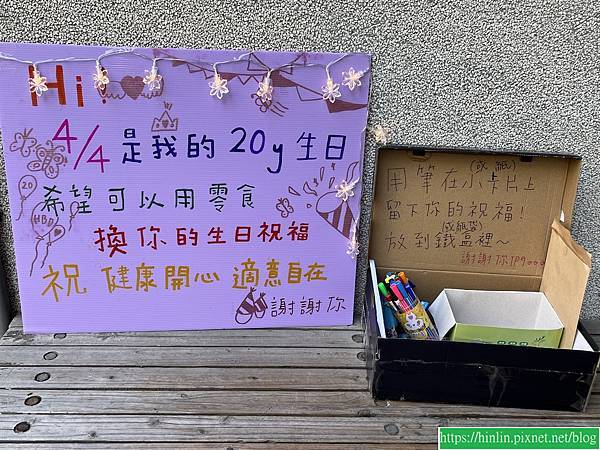 Hi!
4/4是我的20y生日
希望可以用零食
換你的生日祝福
祝健康開心適意自在
謝謝你
20
HBD
(或紙)
用筆在小卡片上
留下你的祝福!
(或紙袋)
放到鐵盒裡~
謝謝你
https://hinlin.pixnet.net/blog